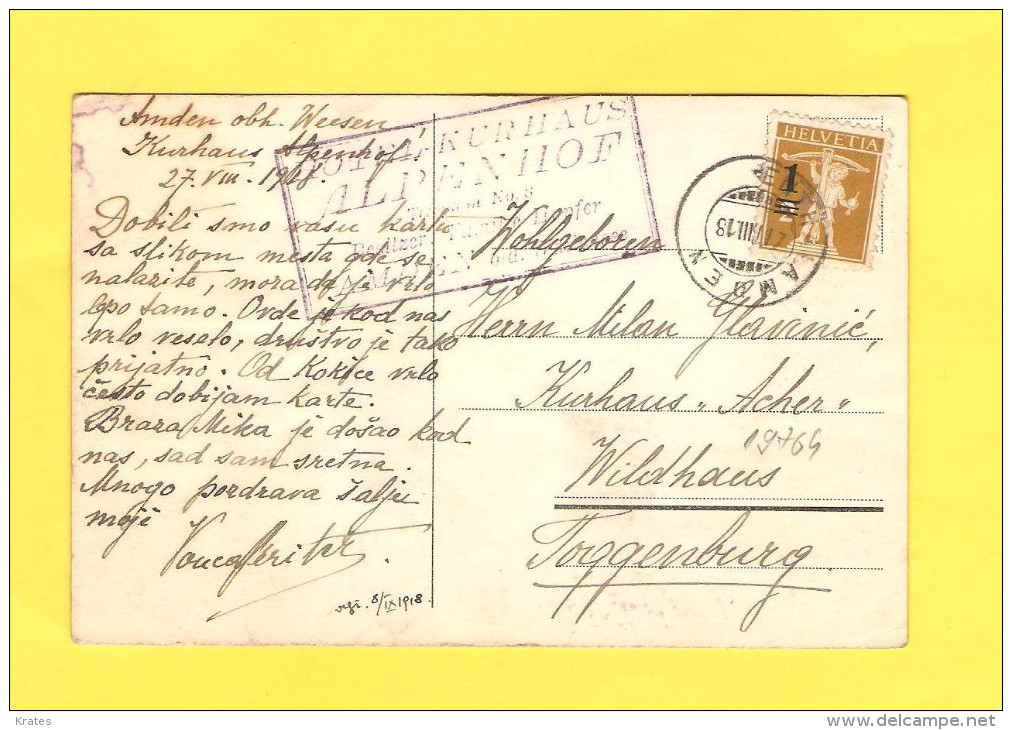 Amden obh. Weesen,
Kurhaus Alpenhof
27. VIII. 1918.
Dobili smo vašu kartu
sa slikom mesta gde se
nalazite, mora da je vrlo
lepo samo. Ovde je kod nas
vrlo veselo, društvo je tako
prijatno. Od Kokice vrlo
često dobijam karte.
Braza Mika je došao kod
nas, sad sam sretna.
Mnogo pozdrava šalje
moje
8/IX 1918.
HOTEL KURHAUS
ALPENHOF
Telephon No. 8
Besitzer
AMDEN
HELVETIA
1
AMDEN
27.VIII.18
Wohlgeboren
Herrn Milan Glavinić,
Kurhaus „Acher"
19764
Wildhaus
Toggenburg
Krates
delcampe.net